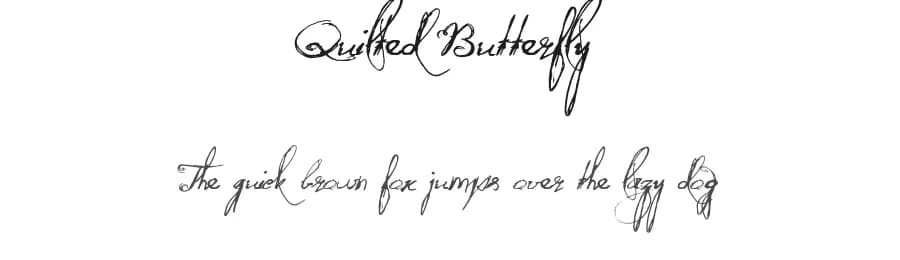 Quilted Butterfly
The quick brown fox jumps over the lazy dog